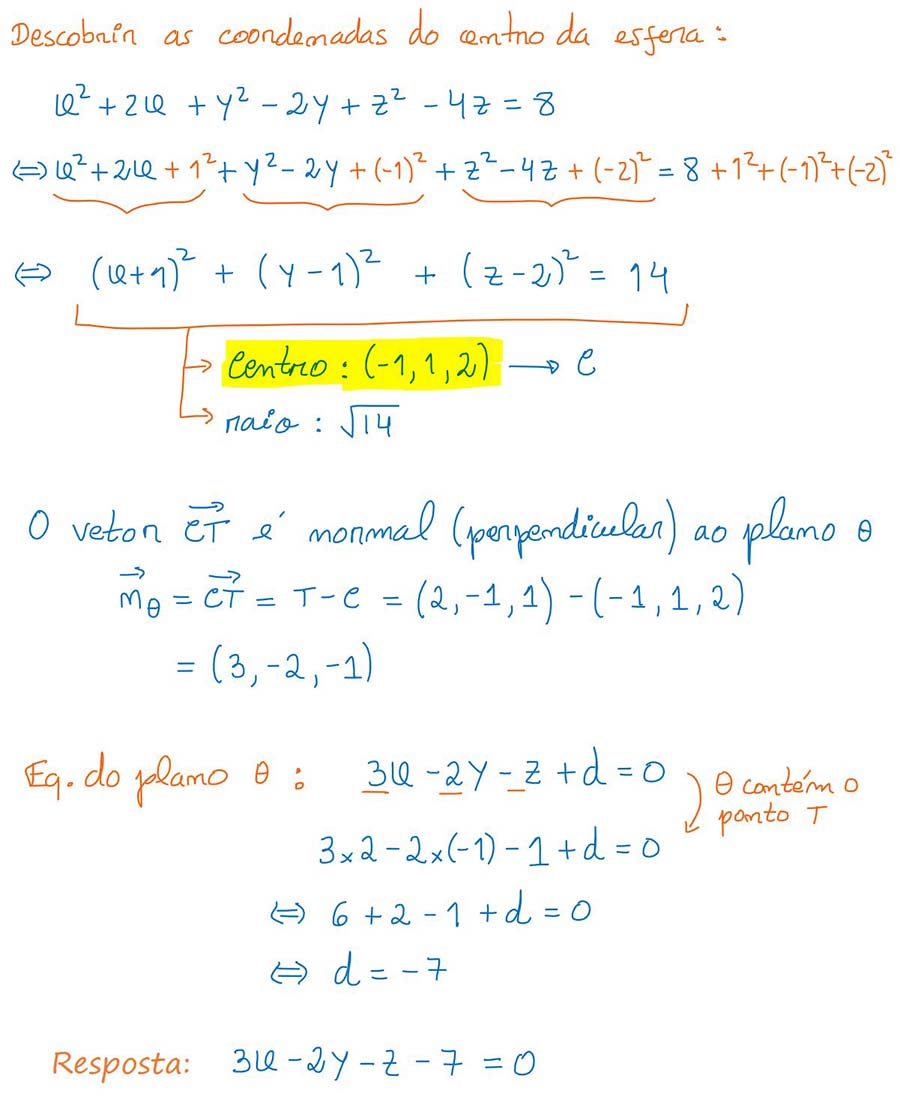 Descobrir as coordenadas do centro da esfera:
x² + 2x + y² - 2y + z² - 4z = 8
⇔ x² + 2x + 1² + y² - 2y + (-1)² + z² - 4z + (-2)² = 8 + 1² + (-1)² + (-2)²
⇔ (x+1)² + (y-1)² + (z-2)² = 14
→ Centro: (-1, 1, 2) → C
→ raio: √14
O vetor C͞T⃗ é normal (perpendicular) ao plano θ
n⃗_θ = CT⃗ = T - C = (2, -1, 1) - (-1, 1, 2)
= (3, -2, -1)
Eq. do plano θ : 3x - 2y - z + d = 0
θ contém o
ponto T
3×2 - 2×(-1) - 1 + d = 0
⇔ 6 + 2 - 1 + d = 0
⇔ d = -7
Resposta: 3x - 2y - z - 7 = 0